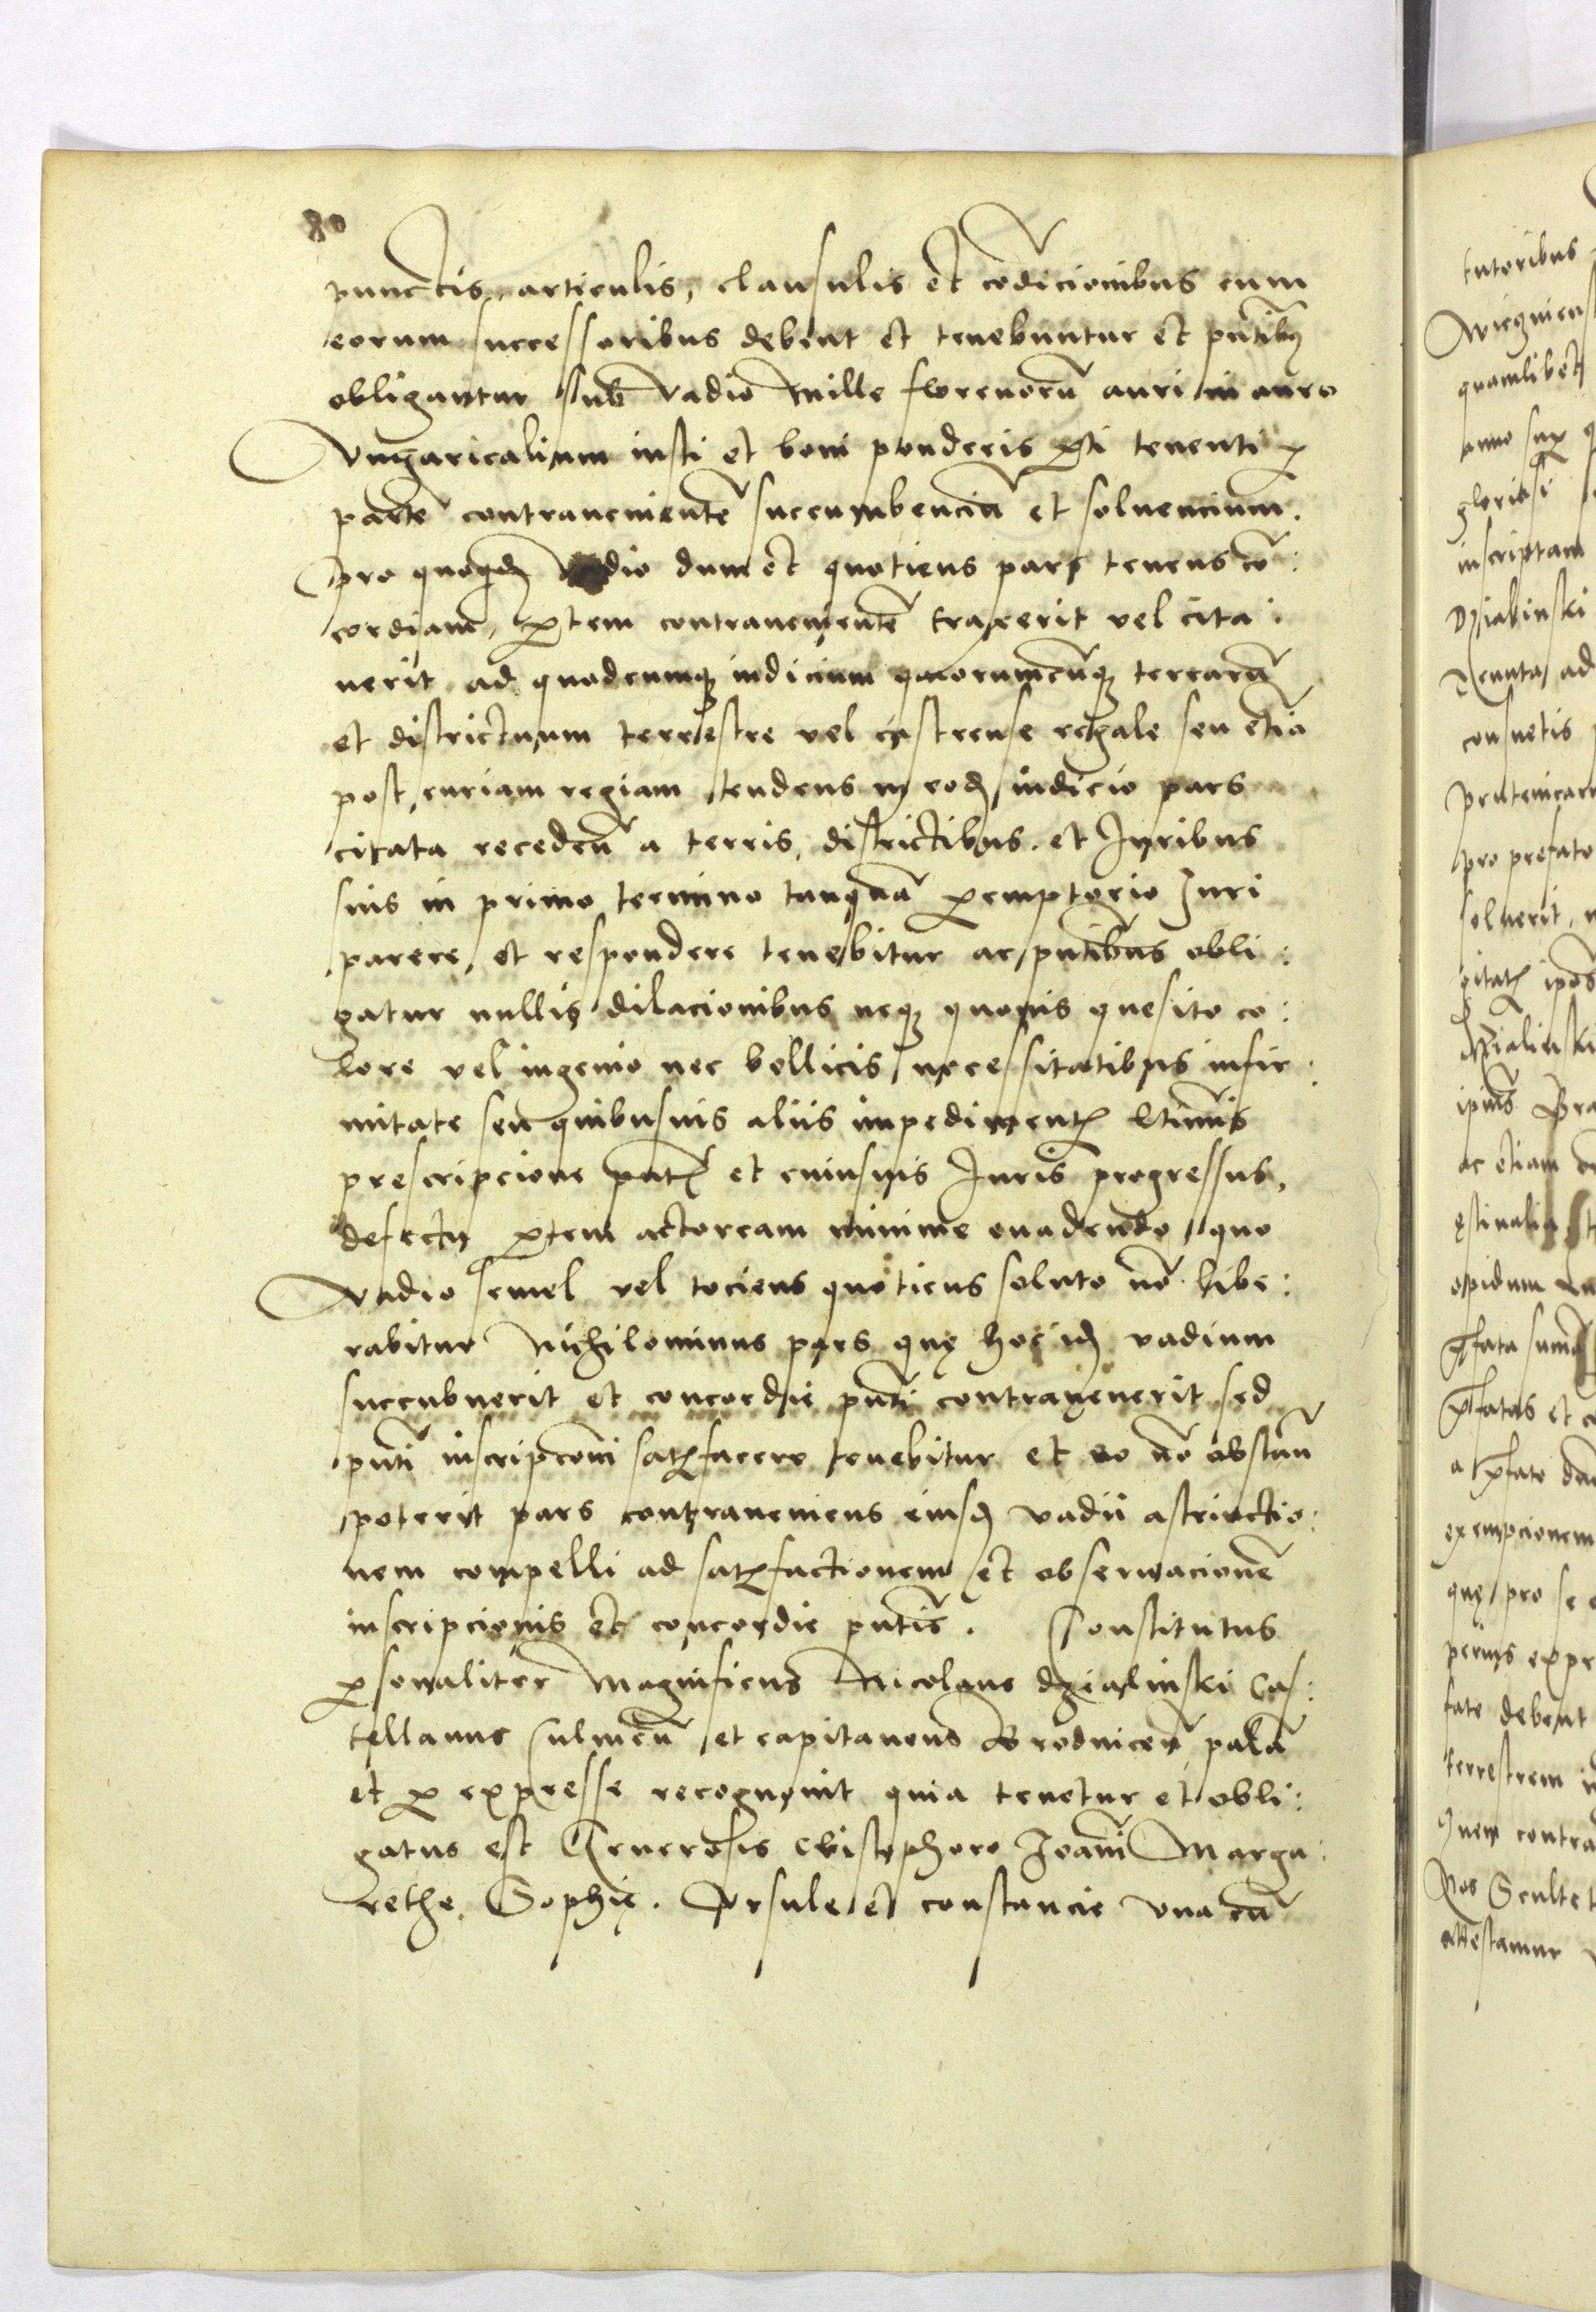 80
punctis, articulis, clausulis et cõdicionibus cum
eorum successoribus debent et tenebuntur et pñtibꝫ
obligantur sub vadio Mille florenorũ auri in auro
Vngaricalium iusti et boni ponderis ꝑti tenenti ꝑ
partẽ contravenientẽ succumbenciũ et solvencium.
pro quoqꝫ vadio dum et quotiens pars tenens cõ:
cordiam, ꝑtem contravenientẽ traxerit vel cita:
verit ad quodcumqꝫ iudicium quorumcũqꝫ terrarũ
et districtuum terrestre vel castrense regale seu etiã
post curiam regiam tendens in eodꝫ iudicio pars
citata recedeñ a terris, districtibus et Juribus
suis in primo termino tanquã ꝑemptorio Juri
parere, et respondere tenebitur ac pñtibus obli:
gatur nullis dilacionibus neqꝫ quovis quesito co:
lore vel ingenio nec bellicis necessitatibus infir:
mitate seu quibusvis aliis impedimentꝭ ltimis
prescripcione pñtꝭ et cuiusvis Juris progressus,
defectu ꝑtem actoream minime evadendo, quo
vadio semel vel tociens quotiens soluto nõ libe:
rabitur Nichilominus pars quę hocidꝫ vadium
succubuerit et concordie pñti contravenerit sed
pñti inscripcõni satꝭfacere tenebitur et eo nõ obstañ
poterit pars contraveniens eiusdꝫ vadii astrinctio:
nem compelli ad satꝭfactionem et observacionẽ
inscripcionis et concordie pñtis. Constitutus
ꝑsonaliter Magnificus Nicolaus dzialinski Cas:
tellanus Culmeñ et capitaneus Brodniceñ palã
et ꝑ expresse recognovit quia tenetur et obli:
gatus est Generosis Cristophoro Joanni Marga:
rethe, Sophię. Ursule et constancie una cũ
tutoribus
quamlibet
anno
gloriosi
inscriptam
Dzialinski
consuetis
pro prefato
solverit,
ac etiam
opidum
exempcionem
quę pro se
debent
terrestrem
Quem contra
Nos
attestamur